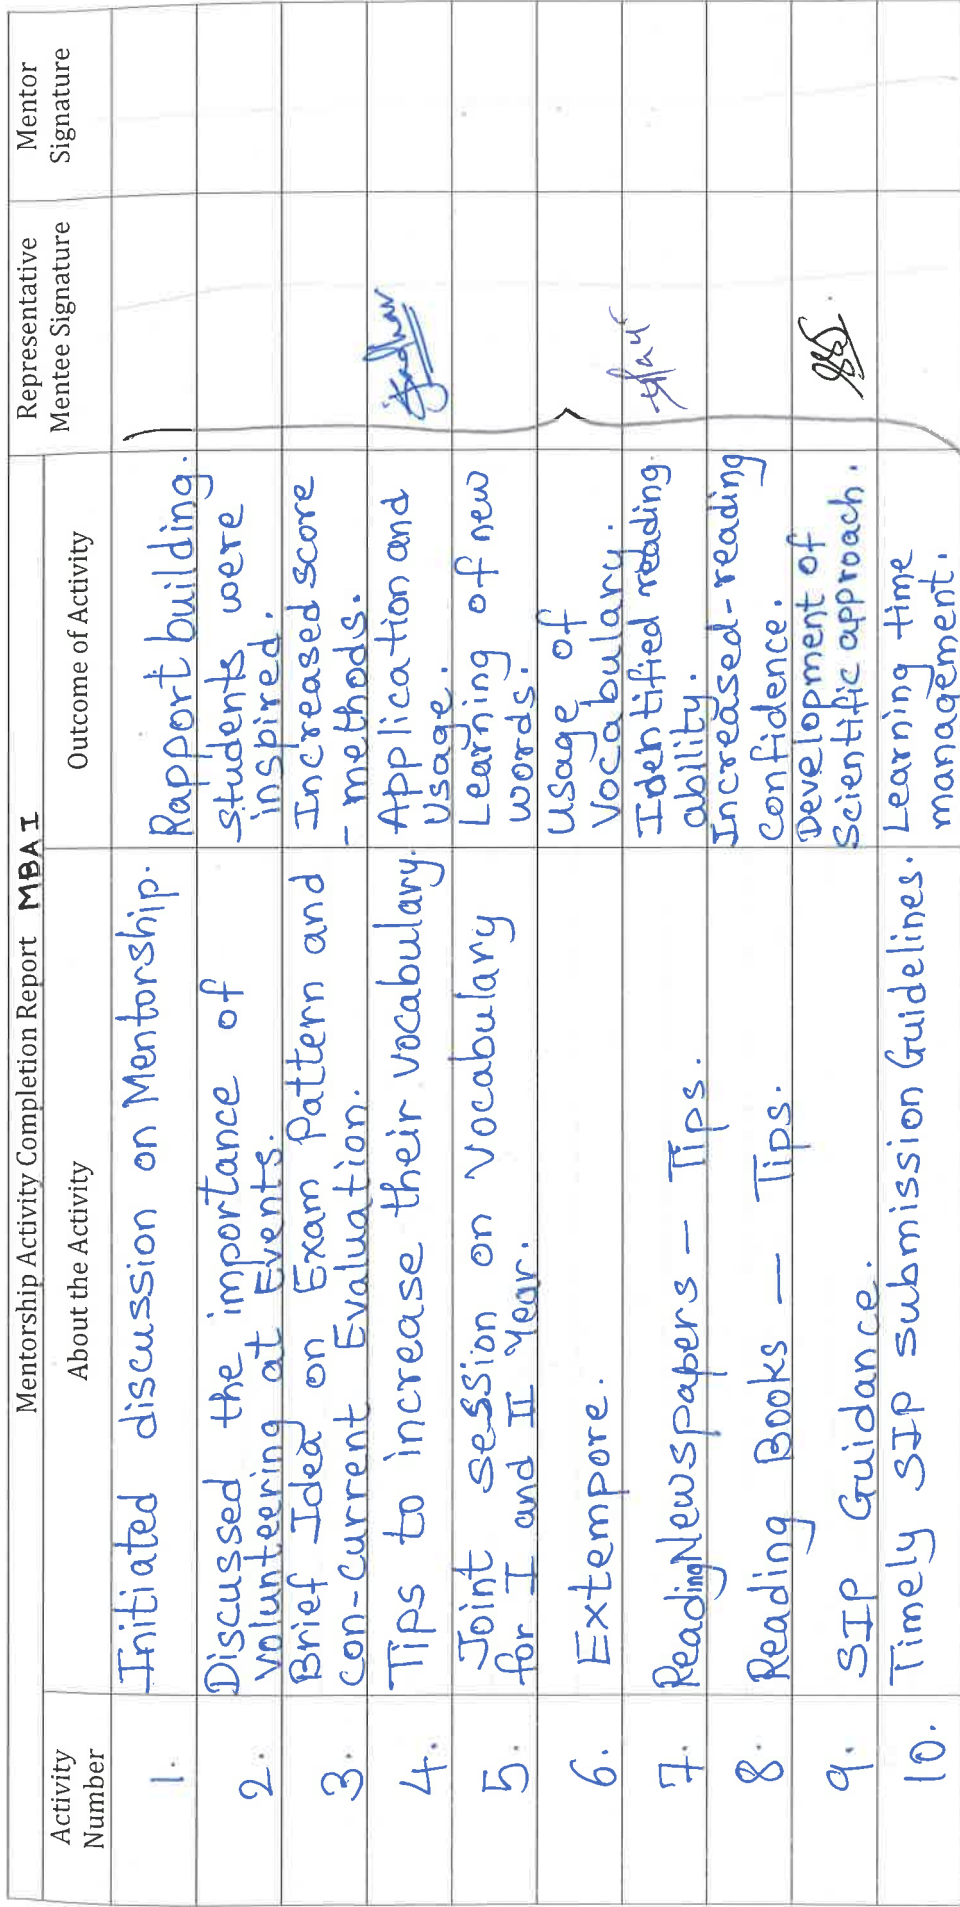 Mentorship Activity Completion Report MBA I
Activity
Number
About the Activity
Outcome of Activity
Representative
Mentee Signature
Mentor
Signature
1.
Initiated discussion on Mentorship.
Rapport building.
2.
Discussed the importance of
volunteering at Events.
students were
inspired.
3.
Brief Idea on Exam Pattern and
Con-current Evaluation.
Increased score
- methods.
4.
Tips to increase their vocabulary.
Application and
Usage.
5.
Joint session on vocabulary
for I and II Year.
Learning of new
words.
6.
Extempore.
Usage of
Vocabulary.
7.
Reading Newspapers — Tips.
Identified reading
ability.
8.
Reading Books — Tips.
Increased-reading
Confidence.
9.
SIP Guidance.
Development of
Scientific approach.
10.
Timely SIP submission Guidelines.
Learning time
management.